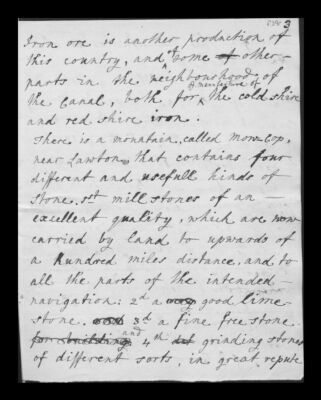 3
Iron ore is another production of
this country, and of some of other
parts in the neighbourhood of
the manufacture of
the Canal, both for the cold shire
and red shire iron.
There is a mountain, called mow Cop,
near Lawton, that contains four
different and usefull kinds of
Stone. 1st mill stones of an —
excellent quality, which are now
carried by land to upwards of
a Hundred miles distance, and to
all the parts of the intended —
navigation: 2d a very good lime
stone. 3d a fine free stone
for building and 4th grinding stones
of different sorts, in great repute